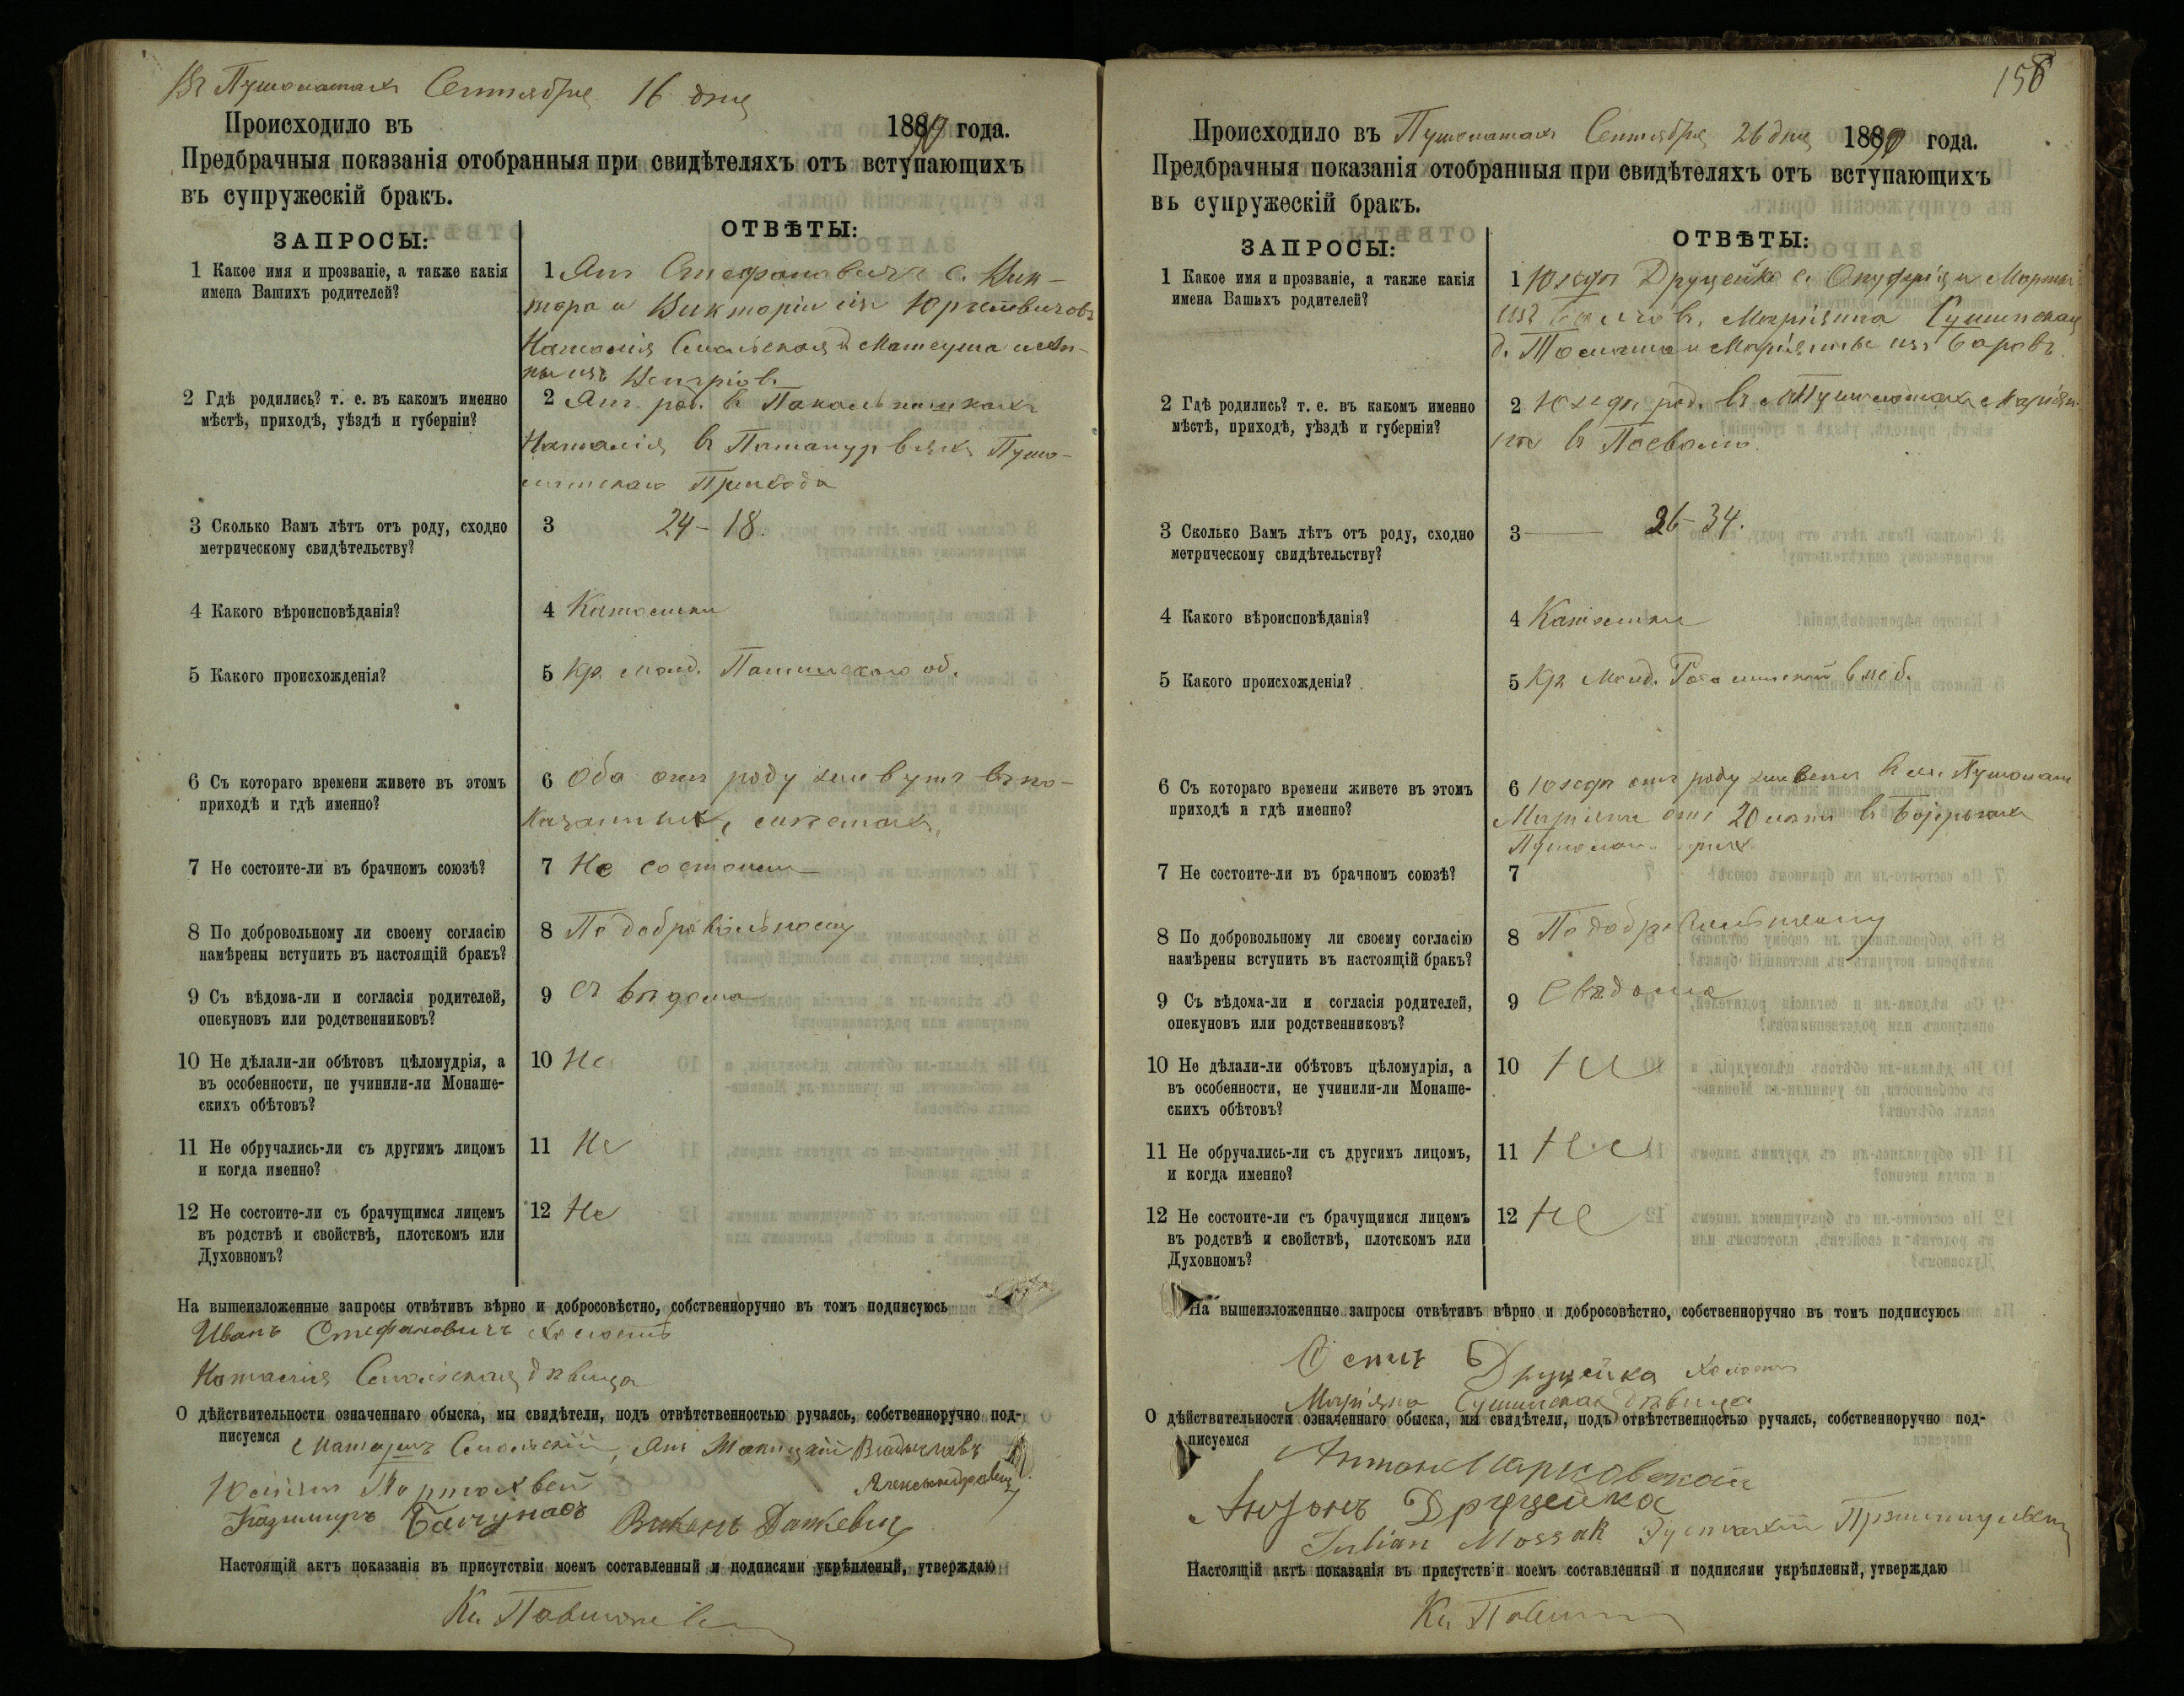 Въ Пушолатахъ Сентября 16 дня
Происходило въ 1890 года.
Предбрачныя показанія отобранныя при свидѣтеляхъ отъ вступающихъ
въ супружескій бракъ.
ЗАПРОСЫ:
ОТВѢТЫ:
1 Какое имя и прозваніе, а также какія
имена Вашихъ родителей?
1 Янъ Стефановичъ с. Вик-
тора и Викторіи изъ Юргевичовъ
Наталія Смольская д. Матеуша и Ан-
ны изъ
2 Гдѣ родились? т. е. въ какомъ именно
мѣстѣ, приходѣ, уѣздѣ и губерніи?
2 Янъ род. въ
Наталія въ Пушо-
латскаго Прихода
3 Сколько Вамъ лѣтъ отъ роду, сходно
метрическому свидѣтельству?
3 24 - 18.
4 Какого вѣроисповѣданія?
4 Католики
5 Какого происхожденія?
5 Кр. об.
6 Съ котораго времени живете въ этомъ
приходѣ и гдѣ именно?
6 Оба отъ роду живутъ въ по-
казанныхъ мѣстахъ
7 Не состоите-ли въ брачномъ союзѣ?
7 Не состоимъ
8 По добровольному ли своему согласію
намѣрены вступить въ настоящій бракъ?
8 По добровольному
9 Съ вѣдома-ли и согласія родителей,
опекуновъ или родственниковъ?
9 Съ вѣдома
10 Не дѣлали-ли обѣтовъ цѣломудрія, а
въ особенности, не учинили-ли Монаше-
скихъ обѣтовъ?
10 Не
11 Не обручались-ли съ другимъ лицомъ
и когда именно?
11 Не
12 Не состоите-ли съ брачущимся лицемъ
въ родствѣ и свойствѣ, плотскомъ или
Духовномъ?
12 Не
На вышеизложенные запросы отвѣтивъ вѣрно и добросовѣстно, собственноручно въ томъ подписуюсь
Иванъ Стефановичъ холостъ
Наталія Смольская дѣвица
О дѣйствительности означеннаго обыска, мы свидѣтели, подъ отвѣтственностью ручаясь, собственноручно под-
писуемся Смольскій, Янъ Владыславъ
Александровичъ
Казимиръ
Настоящій актъ показанія въ присутствіи моемъ составленный и подписями укрѣпленый, утверждаю
Кс.
158
Происходило въ Пушолатахъ Сентября 26 дня 1890 года.
Предбрачныя показанія отобранныя при свидѣтеляхъ отъ вступающихъ
въ супружескій бракъ.
ЗАПРОСЫ:
ОТВѢТЫ:
1 Какое имя и прозваніе, а также какія
имена Вашихъ родителей?
1 Юзефъ Друцейка с. Онуфрія и Марты
изъ Маріянна
д. и Маріянны изъ
2 Гдѣ родились? т. е. въ какомъ именно
мѣстѣ, приходѣ, уѣздѣ и губерніи?
2 Юзефъ род. въ м. Пушолатахъ Маріян-
на въ Посволю
3 Сколько Вамъ лѣтъ отъ роду, сходно
метрическому свидѣтельству?
3 26 - 34.
4 Какого вѣроисповѣданія?
4 Католики
5 Какого происхожденія?
5 Кр.
6 Съ котораго времени живете въ этомъ
приходѣ и гдѣ именно?
6 Юзефъ отъ роду живетъ въ м. Пушолат
Маріянна отъ 20 лѣтъ въ
Пушолат. прих.
7 Не состоите-ли въ брачномъ союзѣ?
7
8 По добровольному ли своему согласію
намѣрены вступить въ настоящій бракъ?
8 По добровольному
9 Съ вѣдома-ли и согласія родителей,
опекуновъ или родственниковъ?
9 Свѣдома
10 Не дѣлали-ли обѣтовъ цѣломудрія, а
въ особенности, не учинили-ли Монаше-
скихъ обѣтовъ?
10 Не
11 Не обручались-ли съ другимъ лицомъ,
и когда именно?
11 Не
12 Не состоите-ли съ брачущимся лицемъ
въ родствѣ и свойствѣ, плотскомъ или
Духовномъ?
12 Не
На вышеизложенные запросы отвѣтивъ вѣрно и добросовѣстно, собственноручно въ томъ подписуюсь
Осипъ Друцейка холостъ
Маріяна дѣвица
О дѣйствительности означеннаго обыска, мы свидѣтели, подъ отвѣтственностью ручаясь, собственноручно под-
писуемся
Антонъ Марковскій
Антонъ Друцейка
Julian Mossak
Настоящій актъ показанія въ присутствіи моемъ составленный и подписями укрѣпленый, утверждаю
Кс.